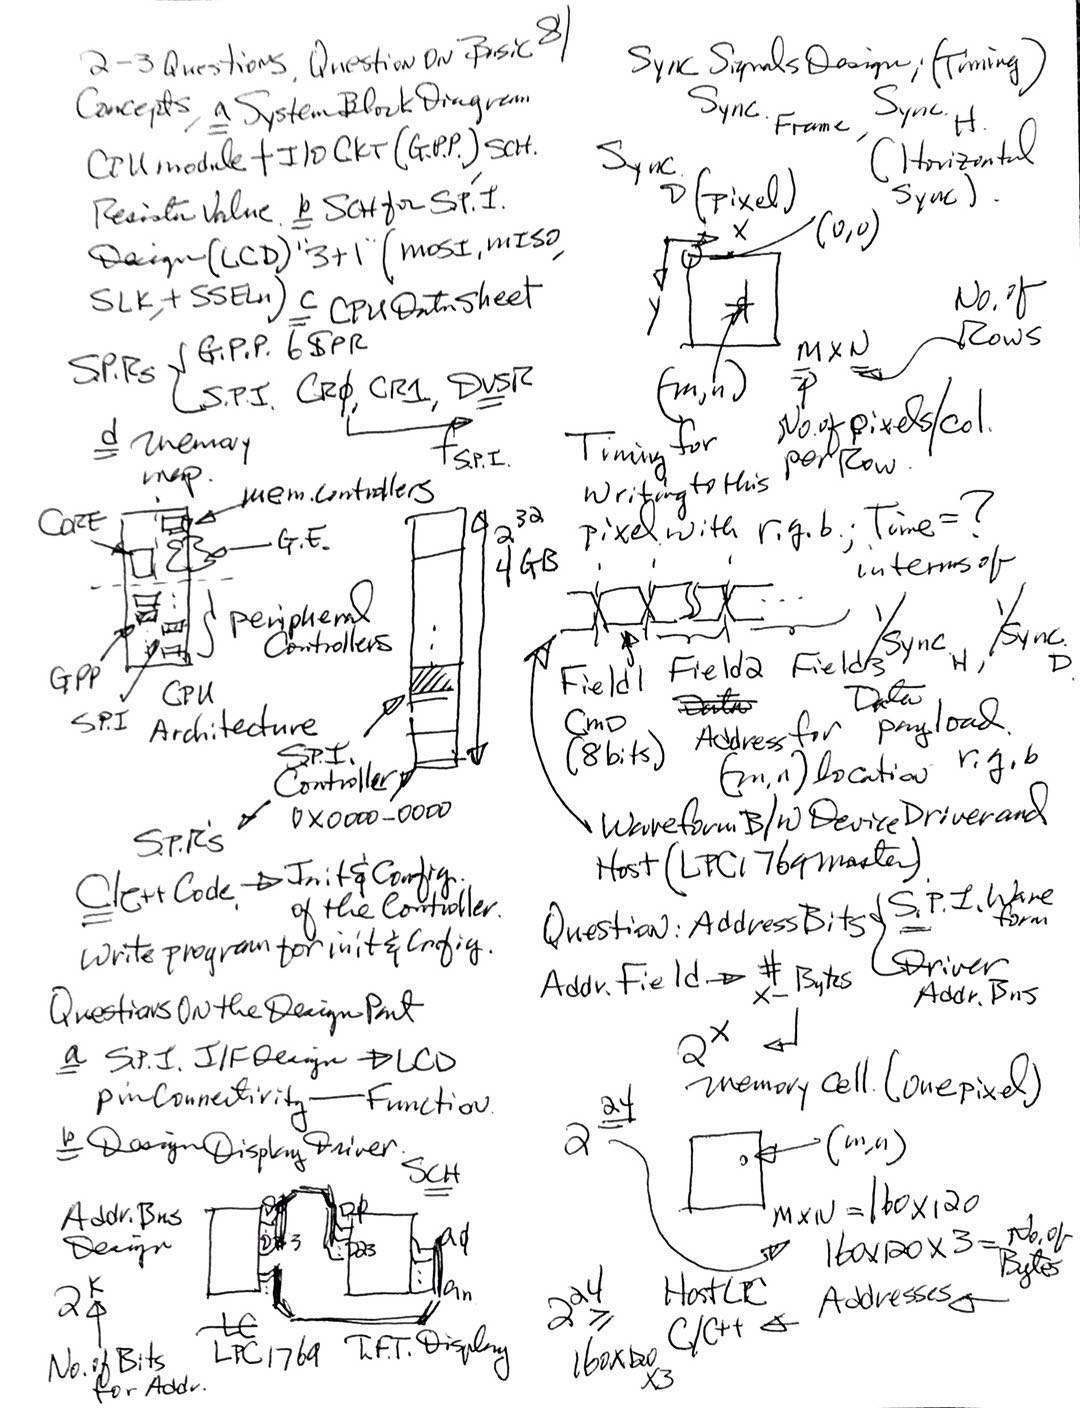 2-3 Questions, Question On Basic 8/
Concepts, a System Block Diagram
CPU module + I/O CKT (G.P.P.) SCH.
Resistor Value. b SCH for S.P.I.
Design (LCD) "3+1" (MOSI, MISO,
SLK, + SSELn) c CPU Datasheet
S.P.R.s { G.P.P. 6 SPR
S.P.I. CRφ, CR1, DVSR
f S.P.I.
d memory
map.
mem. controllers
CORE
G.E.
Peripheral
Controllers
GPP
S.P.I
CPU
Architecture
2^32
4GB
S.P.I.
Controller
0X0000-0000
S.P.R's
C/C++ Code, → Init & Config.
of the Controller.
Write program for init & Config.
Questions On the Design Part
a S.P.I. I/F Design → LCD
pin Connectivity — Function
b Design Display Driver.
SCH
Addr. Bns
Design
2^K
No. of Bits
for Addr.
D23
aφ
an
LPC1769 T.F.T. Display
Sync Signals Design; (Timing)
Sync. Frame, Sync. H.
(Horizontal
Sync).
Sync.
D (Pixel)
X
(0,0)
Y
No. of
Rows
M X N
(m,n)
No. of pixels/col.
per Row.
Timing for
writing to this
pixel with r.g.b.; Time = ?
in terms of
1/Sync. H, 1/Sync. D
Field1 Field2 Field3
Data Data
CMD Address for payload.
(8bits) (m,n) location r.g.b
Waveform B/W Device Driver and
Host (LPC1769 master)
Question: Address Bits { S.P.I. Wave
form
Driver
Addr. Bns
Addr. Field → # Bytes
x-
2^x
memory cell. (one pixel)
2^24
(m,n)
MXN = 160X120
160X120X3 = No. of
Bytes
Host LPC
C/C++ ← Addresses ←
2^24 ≥
160X120
X3